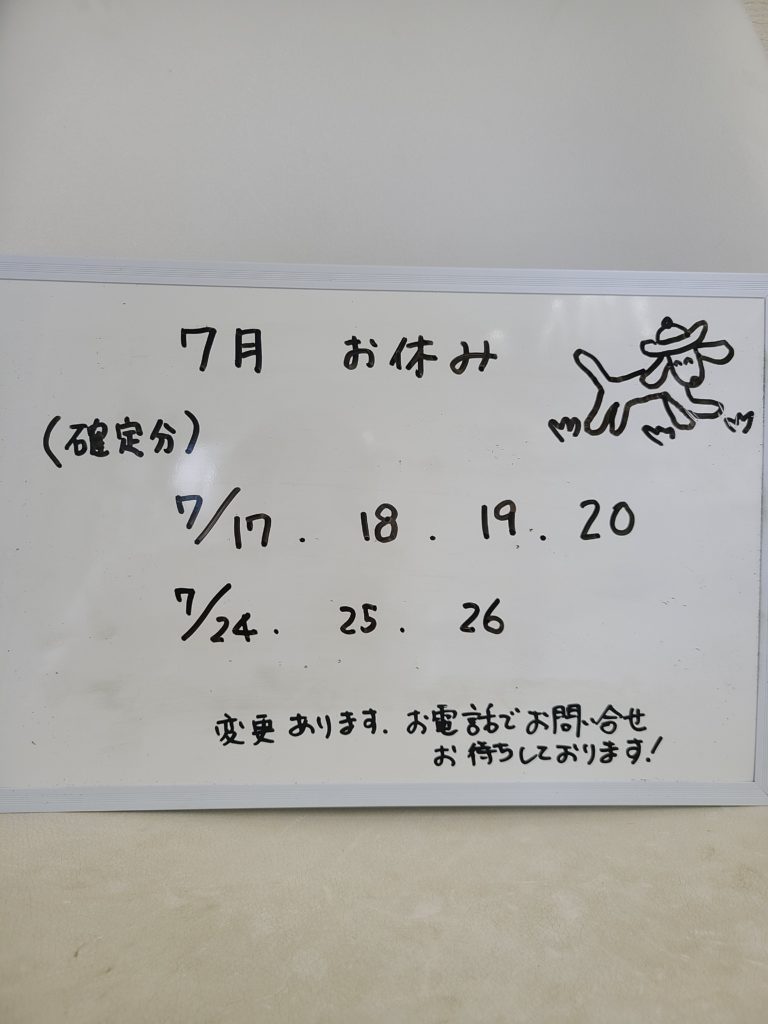 7月 お休み
(確定分)
7/17. 18. 19. 20
7/24. 25. 26
変更あります. お電話でお問い合せ
お待ちしております!